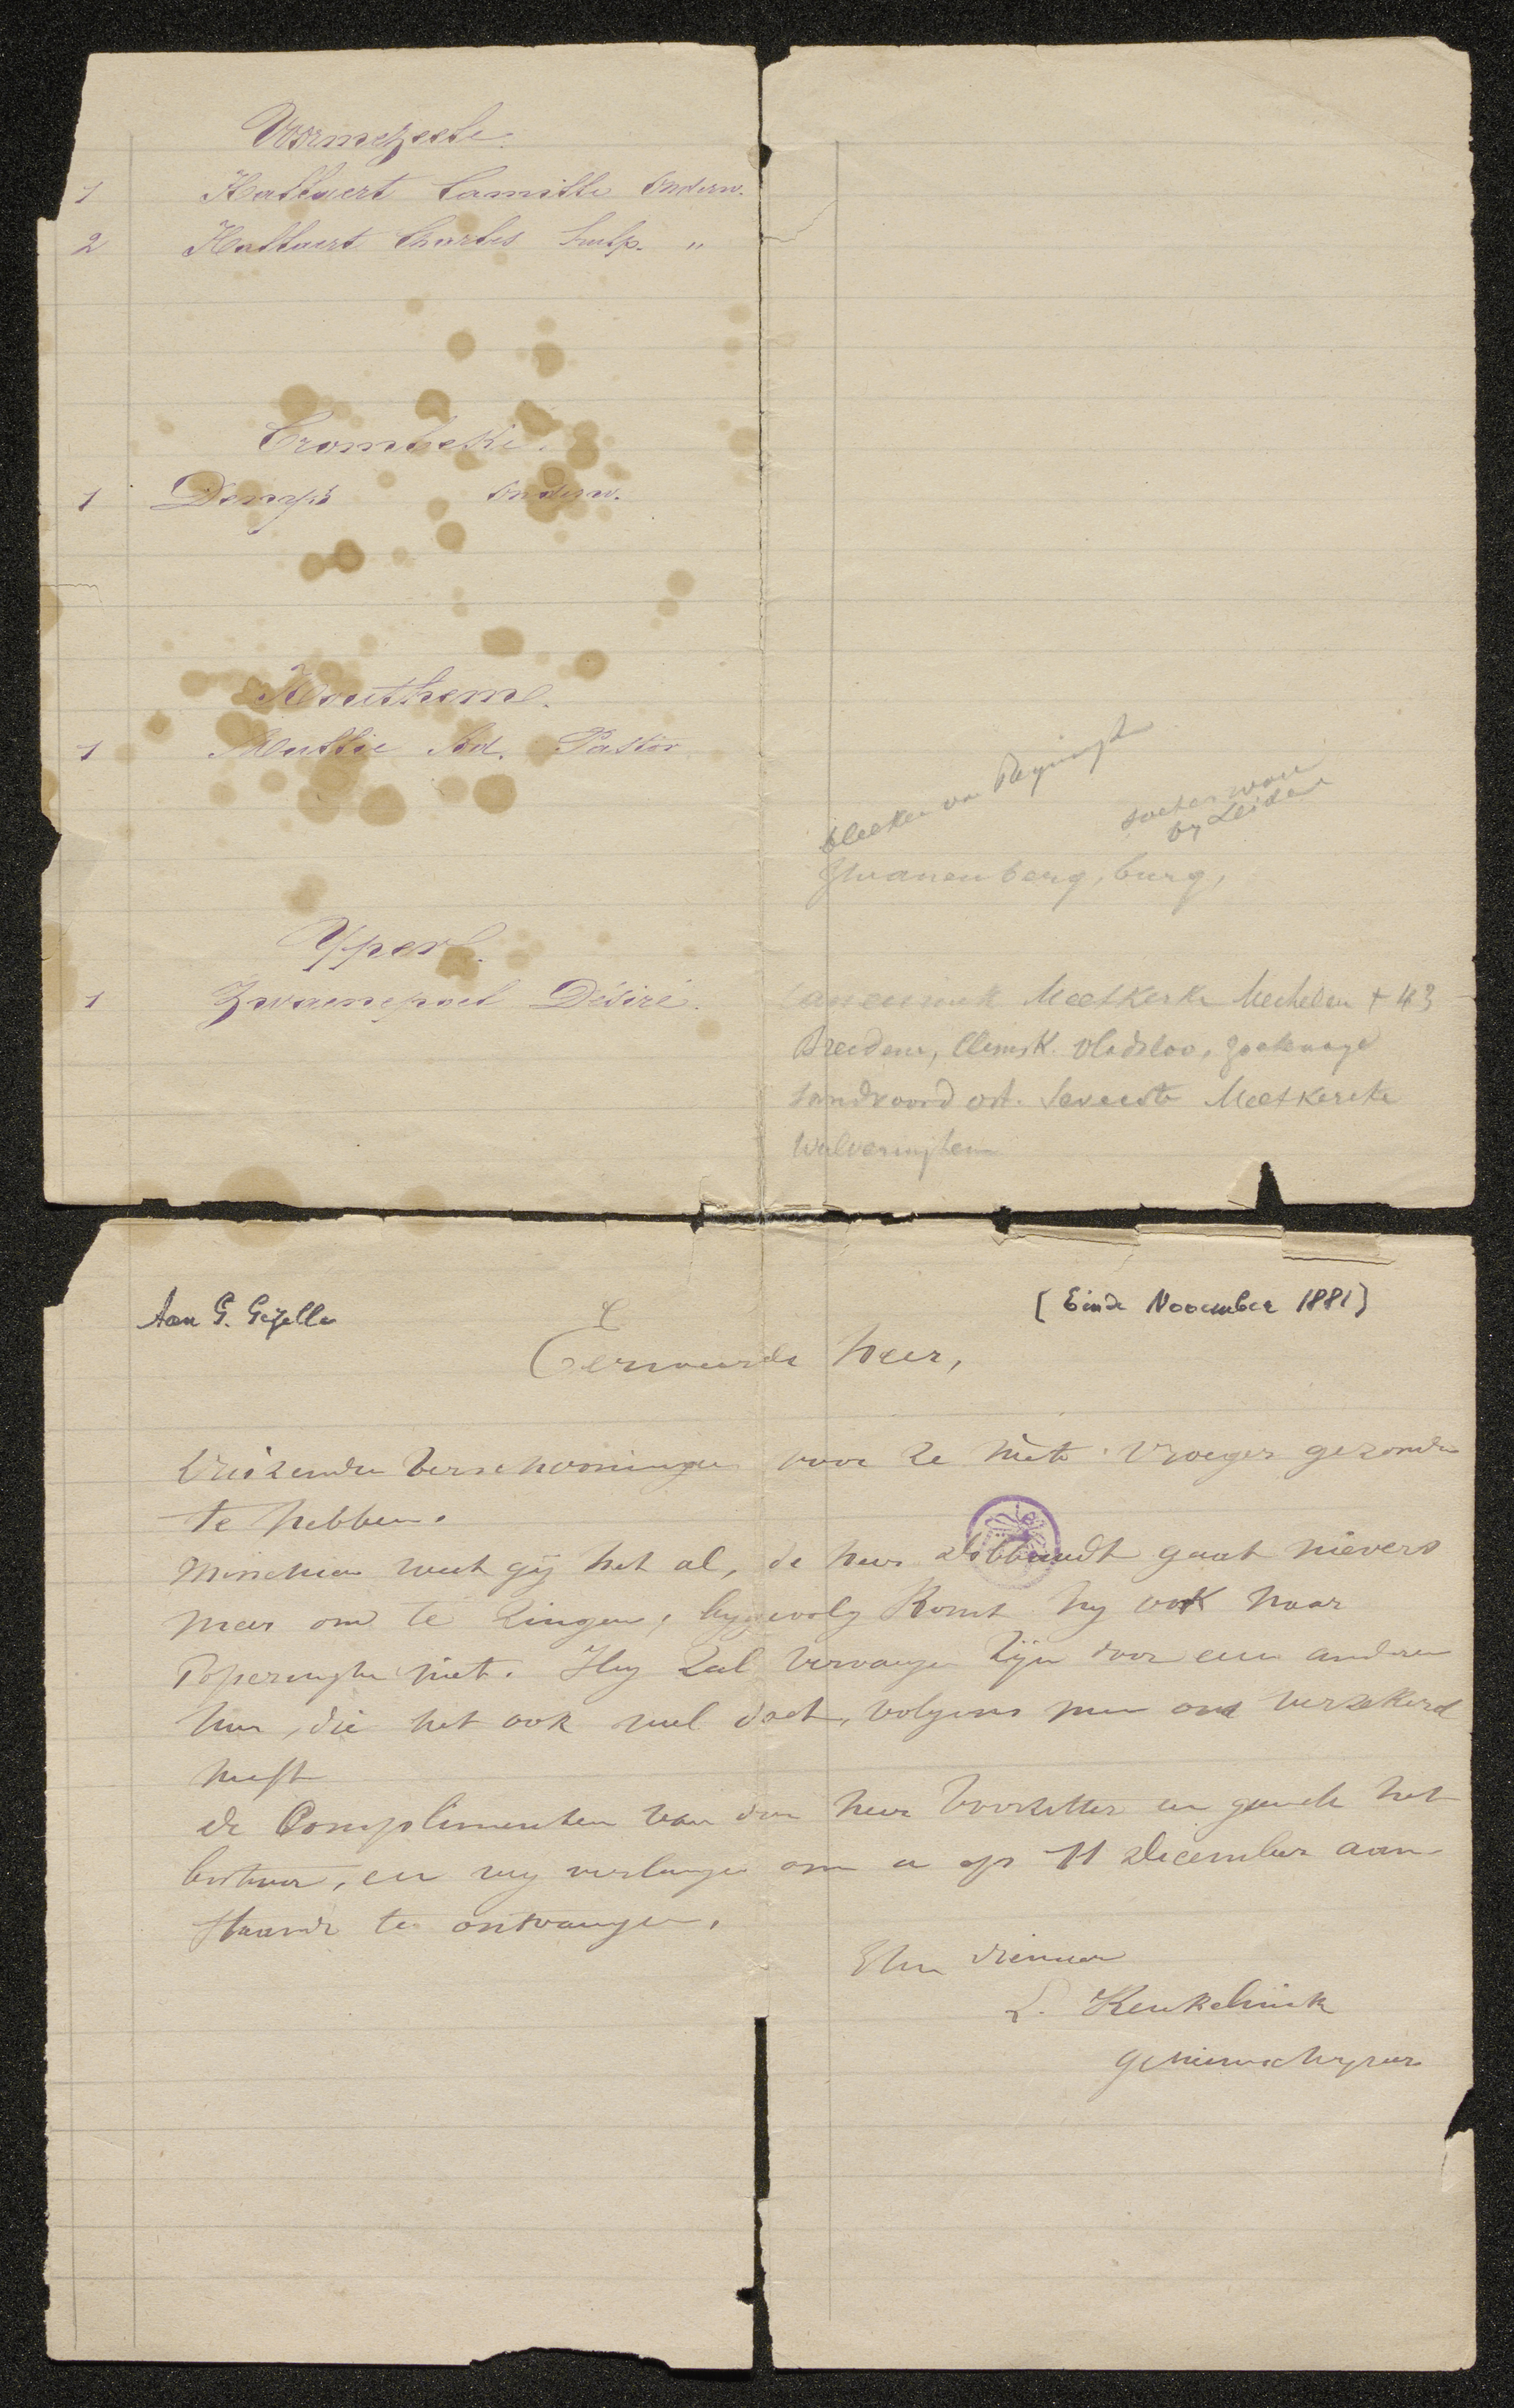 Vormezeele.
1 Hallaert Camille Onderw.
2 Hallaert Charles hulp. "
Crombeke.
1 Denys Onderw.
Houthem.
1 Ad. Pastor
Yper.
1 Zwaenepoel Désiré.
bleeken van
by Leiden
Zwanenberg, burg,
Meetkerke Mechelen + 43
Breedene, Clemsk. Vladsloo,
Sandvoord ost. Meetkercke
Wulveringhem
Aan G. Gezelle
[Einde November 1881]
Eerweerde heer,
Duizenden verschooningen voor ze niet vroeger gezonden
te hebben.
Misschien weet gij het al, de heer gaat nievers
meer om te zingen, bygevolg komt hy ook naar
Poperinghe niet. Hy zal vervangen zijn door een anderen
heer, die het ook wel doet, volgens men ons verzekerd
heeft
de Complimenten van den heer Voorzitter en geheel het
bestuur, en wy verlangen om u op 11 december aan-
staande te ontvangen.
Uw dienaar
L. Keukelinck
geheimschryver